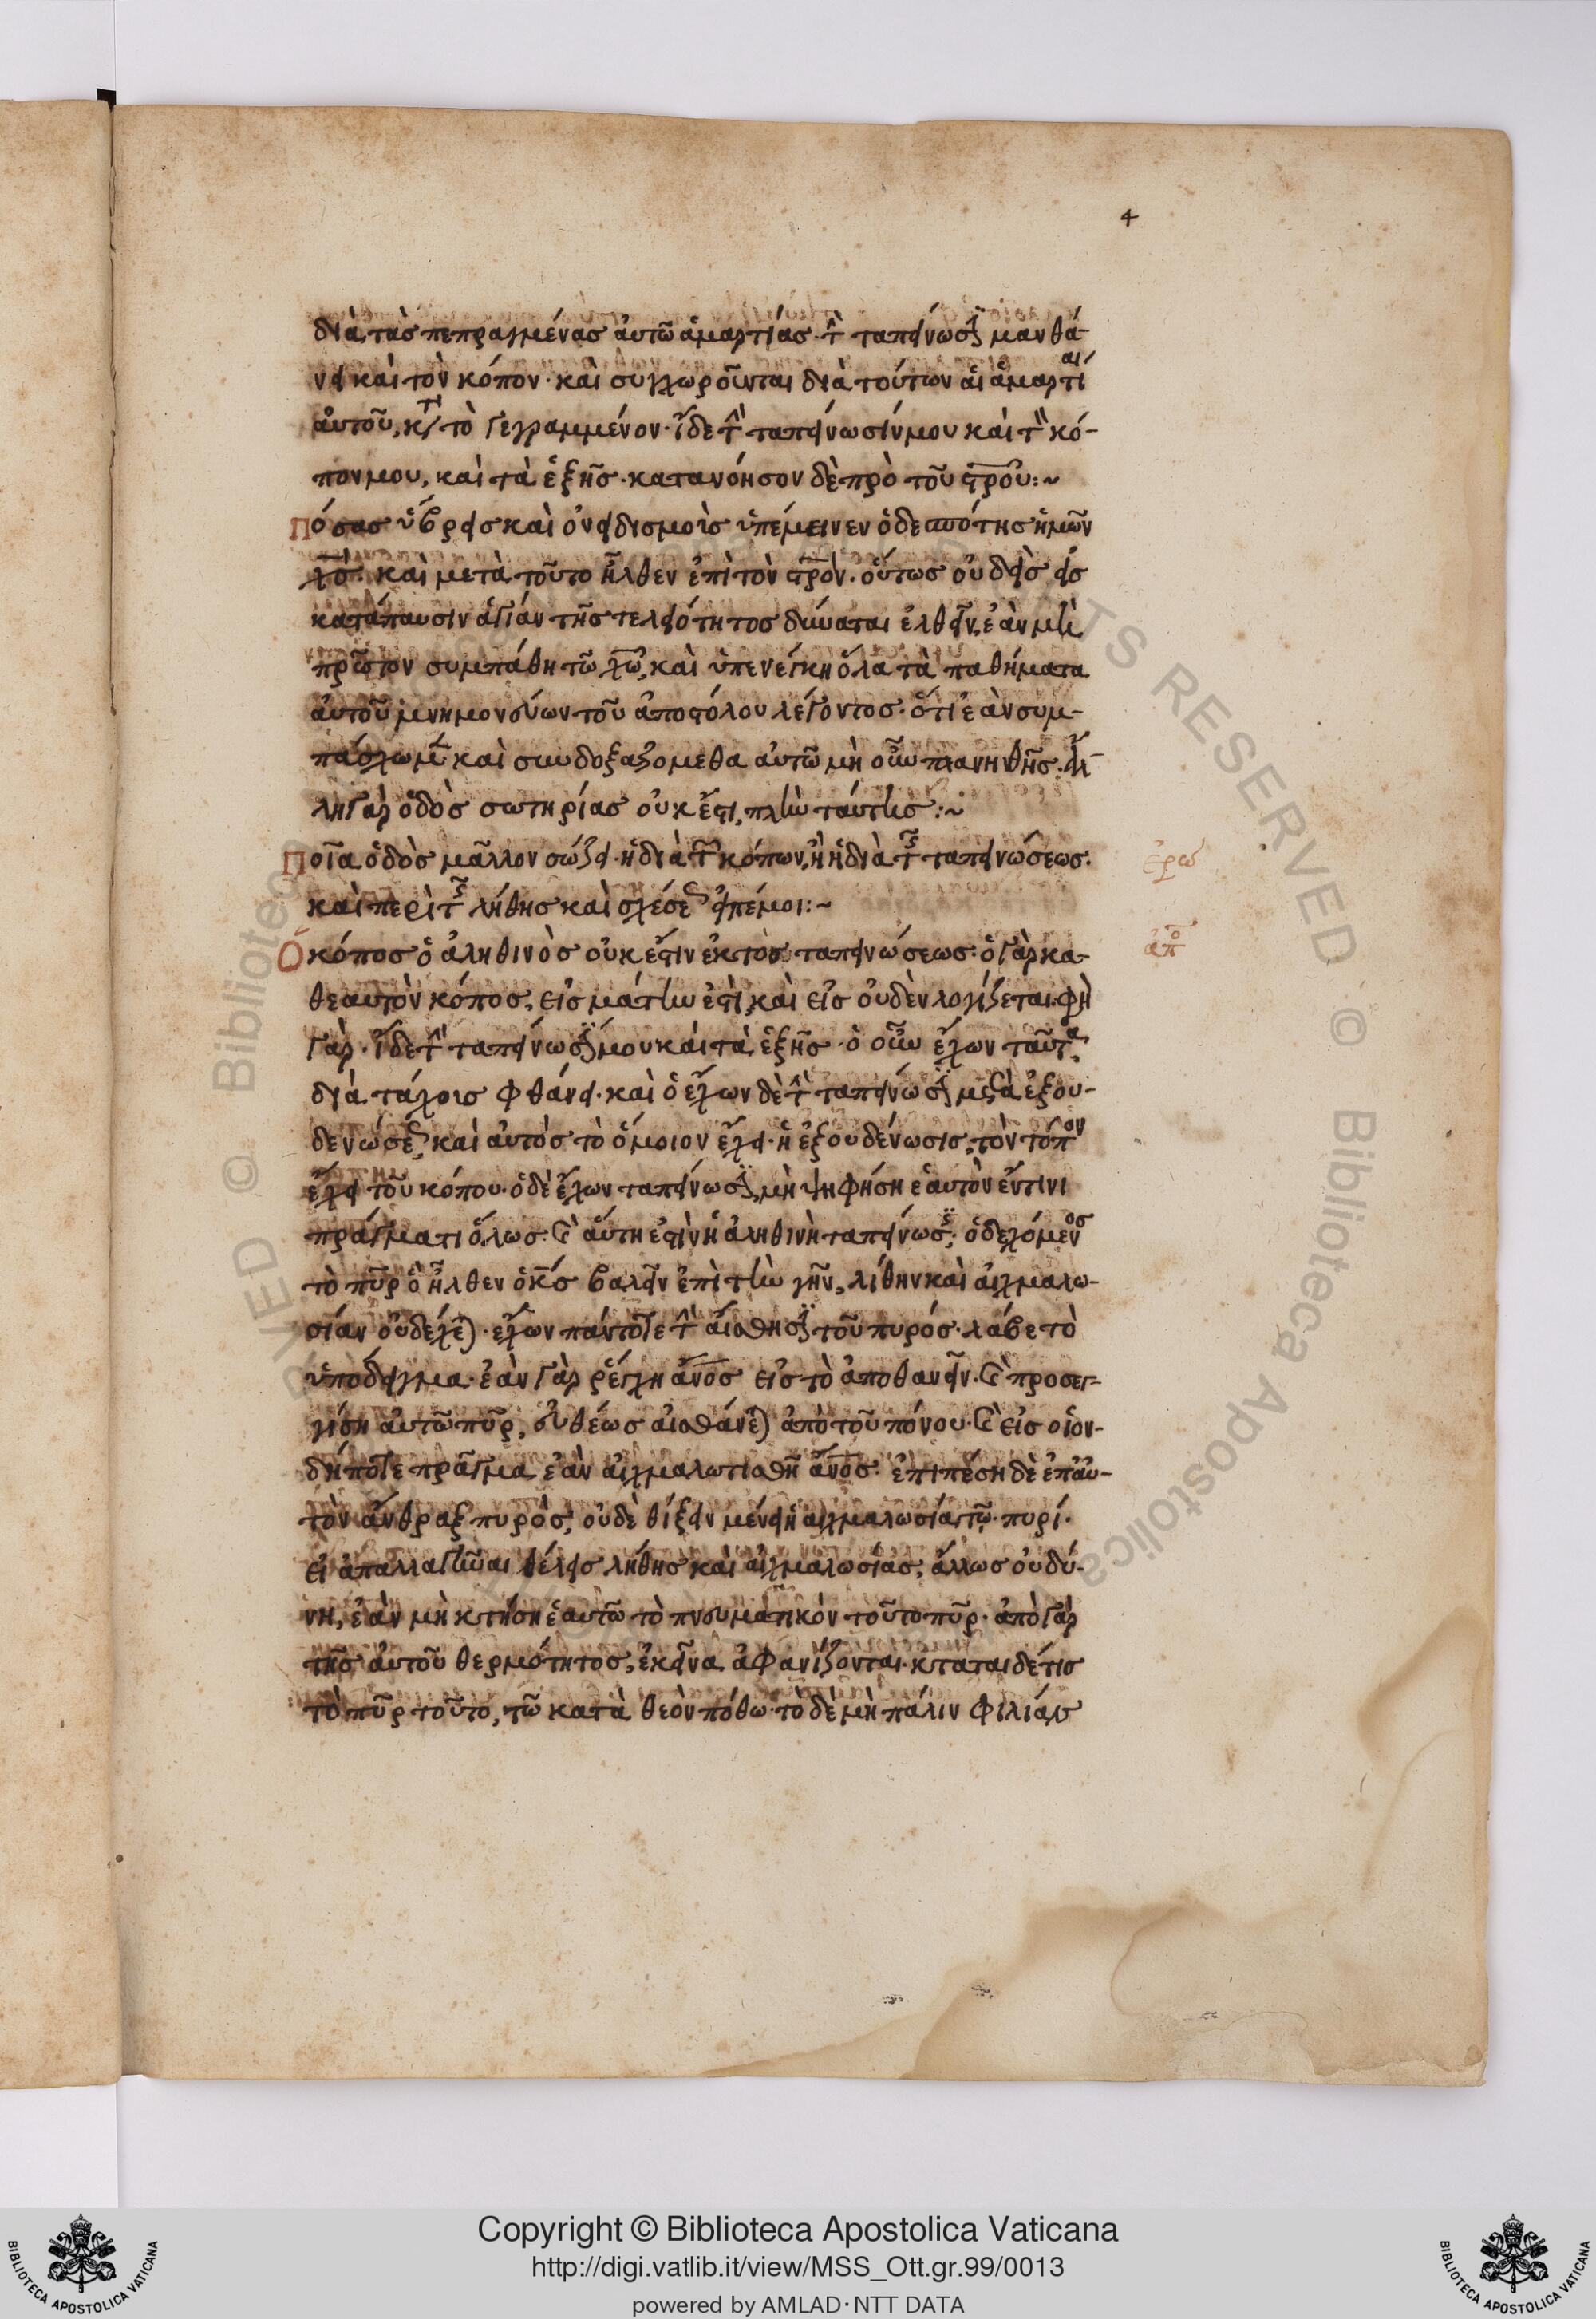 4
διὰ τὰσ πεπραγμένας αὐτῶ ἁμαρτίας· τ̀ ταπείνωσ μανθά-
νει καὶ τὸν κόπον· καὶ συγχωροῦνται διὰ τούτων αἱ ἁμαρτίαι
αὐτοῦ, κτ τὸ γεγραμμένον· ἴδε τ̀ ταπείνωσίν μου καὶ τ̀ κό-
πον μου, καὶ τὰ ἑξῆς· κατανόησον δὲ πρὸ τοῦ στροῦ:~
Πόσας ὕβρεις καὶ ὀνειδισμοὶς ὑπέμεινεν ὁ δεσπότης ἡμῶν
χσ· καὶ μετὰ τοῦτο ἦλθεν ἐπὶ τὸν στρόν· οὕτως οὐδεὶς εἰς
κατάπαυσιν ἁγίαν τῆς τελειότητος δύναται ἐλθεῖν, ἐὰν μὴ
πρῶτον συμπάθη τῶ χω, καὶ ὑπενέγκη ὅλα τὰ παθήματα
αὐτοῦ μνημονεύων τοῦ ἀποστόλου λέγοντος· ὅτι ἐὰν συμ-
πάσχωμ καὶ συνδοξαζόμεθα αὐτῶ μὴ οὖν πλανηθῆς· ἄλ-
λη γὰρ ὁδὸς σωτηρίας οὐκ ἔστι, πλὴν ταύτης:~
Ποῖα ὁδὸς μᾶλλον σώζει· ἡ διὰ τ κόπων, ἢ ἡ διὰ τ ταπεινώσεως· ἐρω
καὶ περὶ τ λήθης καὶ σχέσε εἰπέ μοι:~
Ὁ κόπος ὁ ἀληθινὸς οὐκ ἔστιν ἐκτὸς ταπεινώσεως· ὁ γὰρ κα- ἀπο
θεαυτὸν κόπος, εἰς μάτην ἐστὶ, καὶ εἰς οὐδὲν λογίζεται· φὴ
γὰρ· ἴδε τ̀ ταπείνωσ μου καὶ τὰ ἑξῆς· ὁ οὖν ἔχων ταῦτα,
διὰ τάχοις φθάνει· καὶ ὁ ἔχων δὲ τ̀ ταπείνωσ μετὰ ἐξου-
δενώσε, καὶ αὐτὸς τὸ ὅμοιον ἔχει· ἡ ἐξουδένωσις, τὸν τόπον
ἔχει τοῦ κόπου· ὁ δὲ ἔχων ταπείνωσ, μὴ ψηφήση ἑαυτὸν ἔν τινι
πράγματι ὅλως· καὶ αὕτη ἐστὶν ἡ ἀληθινὴ ταπείνωσ· ὁ δεχόμενος
τὸ πῦρ ὃ ἦλθεν ὁ κς βαλεῖν ἐπὶ τὴν γῆν, λίθην καὶ αἰχμαλω-
σίαν οὐ δέχε· ἔχων πάντοτε τ̀ αἴσθησ τοῦ πυρός· λάβε τὸ
ὑπόδειγμα· ἐὰν γὰρ ῥέγχη ἄνος εἰς τὸ ἀποθανεῖν· καὶ προσεγ-
γίση αὐτῶ πῦρ, εὐθέως αἰσθάνε ἀπὸ τοῦ πόνου· καὶ εἰς οἷον-
δήποτε πρᾶγμα ἐὰν αἰχμαλωτισθῆ ἄνος· ἐπιπέση δὲ ἐπ' αὐ-
τὸν ἄνθραξ πυρός, οὐδὲ θίξειν μένει ἡ αἰχμαλωσία τῶ πυρί·
εἰ ἀπαλλαγῆναι θέλεις λήθης καὶ αἰχμαλωσίας, ἄλλως οὐ δύ-
νη, ἐὰν μὴ κτήση ἑαυτῶ τὸ πνευματικὸν τοῦτο πῦρ· ἀπὸ γὰρ
τῆς αὐτοῦ θερμότητος, ἐκεῖνα ἀφανίζονται· κτᾶται δέ τις
τὸ πῦρ τοῦτο, τῶ κατὰ θεὸν πόθω· τὸ δὲ μὴ πάλιν φιλιάσ
Copyright © Biblioteca Apostolica Vaticana
http://digi.vatlib.it/view/MSS_Ott.gr.99/0013
powered by AMLAD · NTT DATA
BIBLIOTECA APOSTOLICA VATICANA
BIBLIOTECA APOSTOLICA VATICANA